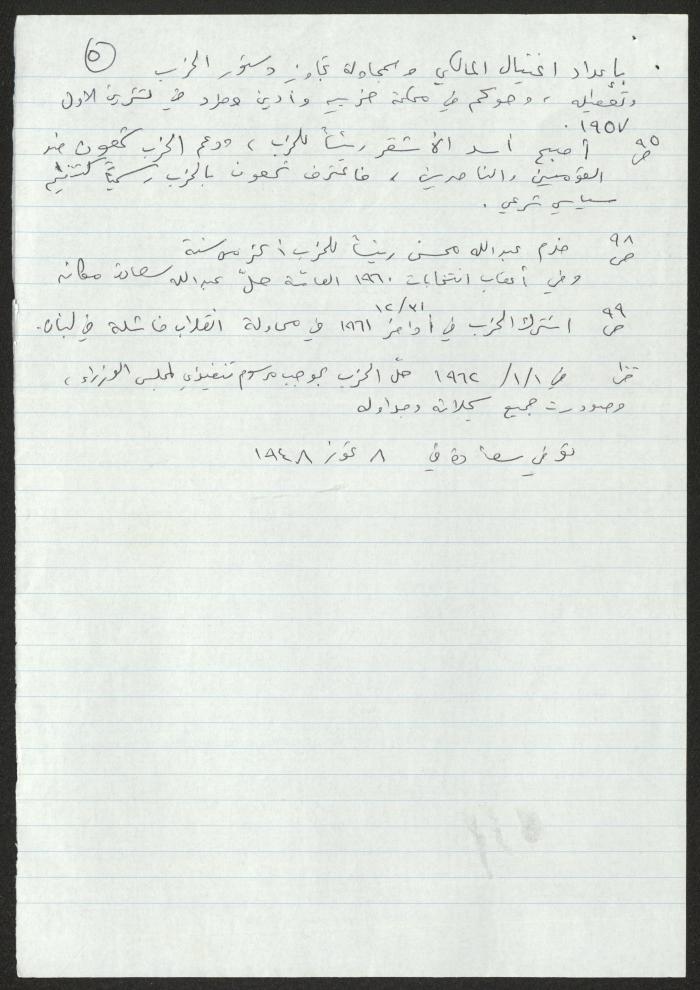 ٥
بإعداد اغتيال المالكي وبمحاولة تجاوز دستور الحزب
وتعطيله ، وحوكم في محكمة حزبية وأدين وطرد في تشرين الاول
١٩٥٧ .
ص ٩٥ أصبح أسد الأشقر رئيساً للحزب ، ودعم الحزب شمعون ضد
القوميين والناصريين ، فاعترف شمعون بالحزب رسمياً كتنظيم
سياسي شرعي .
ص ٩٨ خدم عبدالله محسن رئيساً للحزب أكثر من سنة
وفي أعقاب انتخابات ١٩٦٠ العامّة حلّ عبدالله سعادة مكانه
ص ٩٩ اشترك الحزب في أواخر ١٩٦١ في محاولة انقلاب فاشلة في لبنان.
١٢/٣١
في ١/١/ ١٩٦٢ حلّ الحزب بموجب مرسوم تنفيذي لمجلس الوزراء ،
وصودرت جميع سجلاته وجداوله
توفي سعادة في ٨ تموز ١٩٤٨